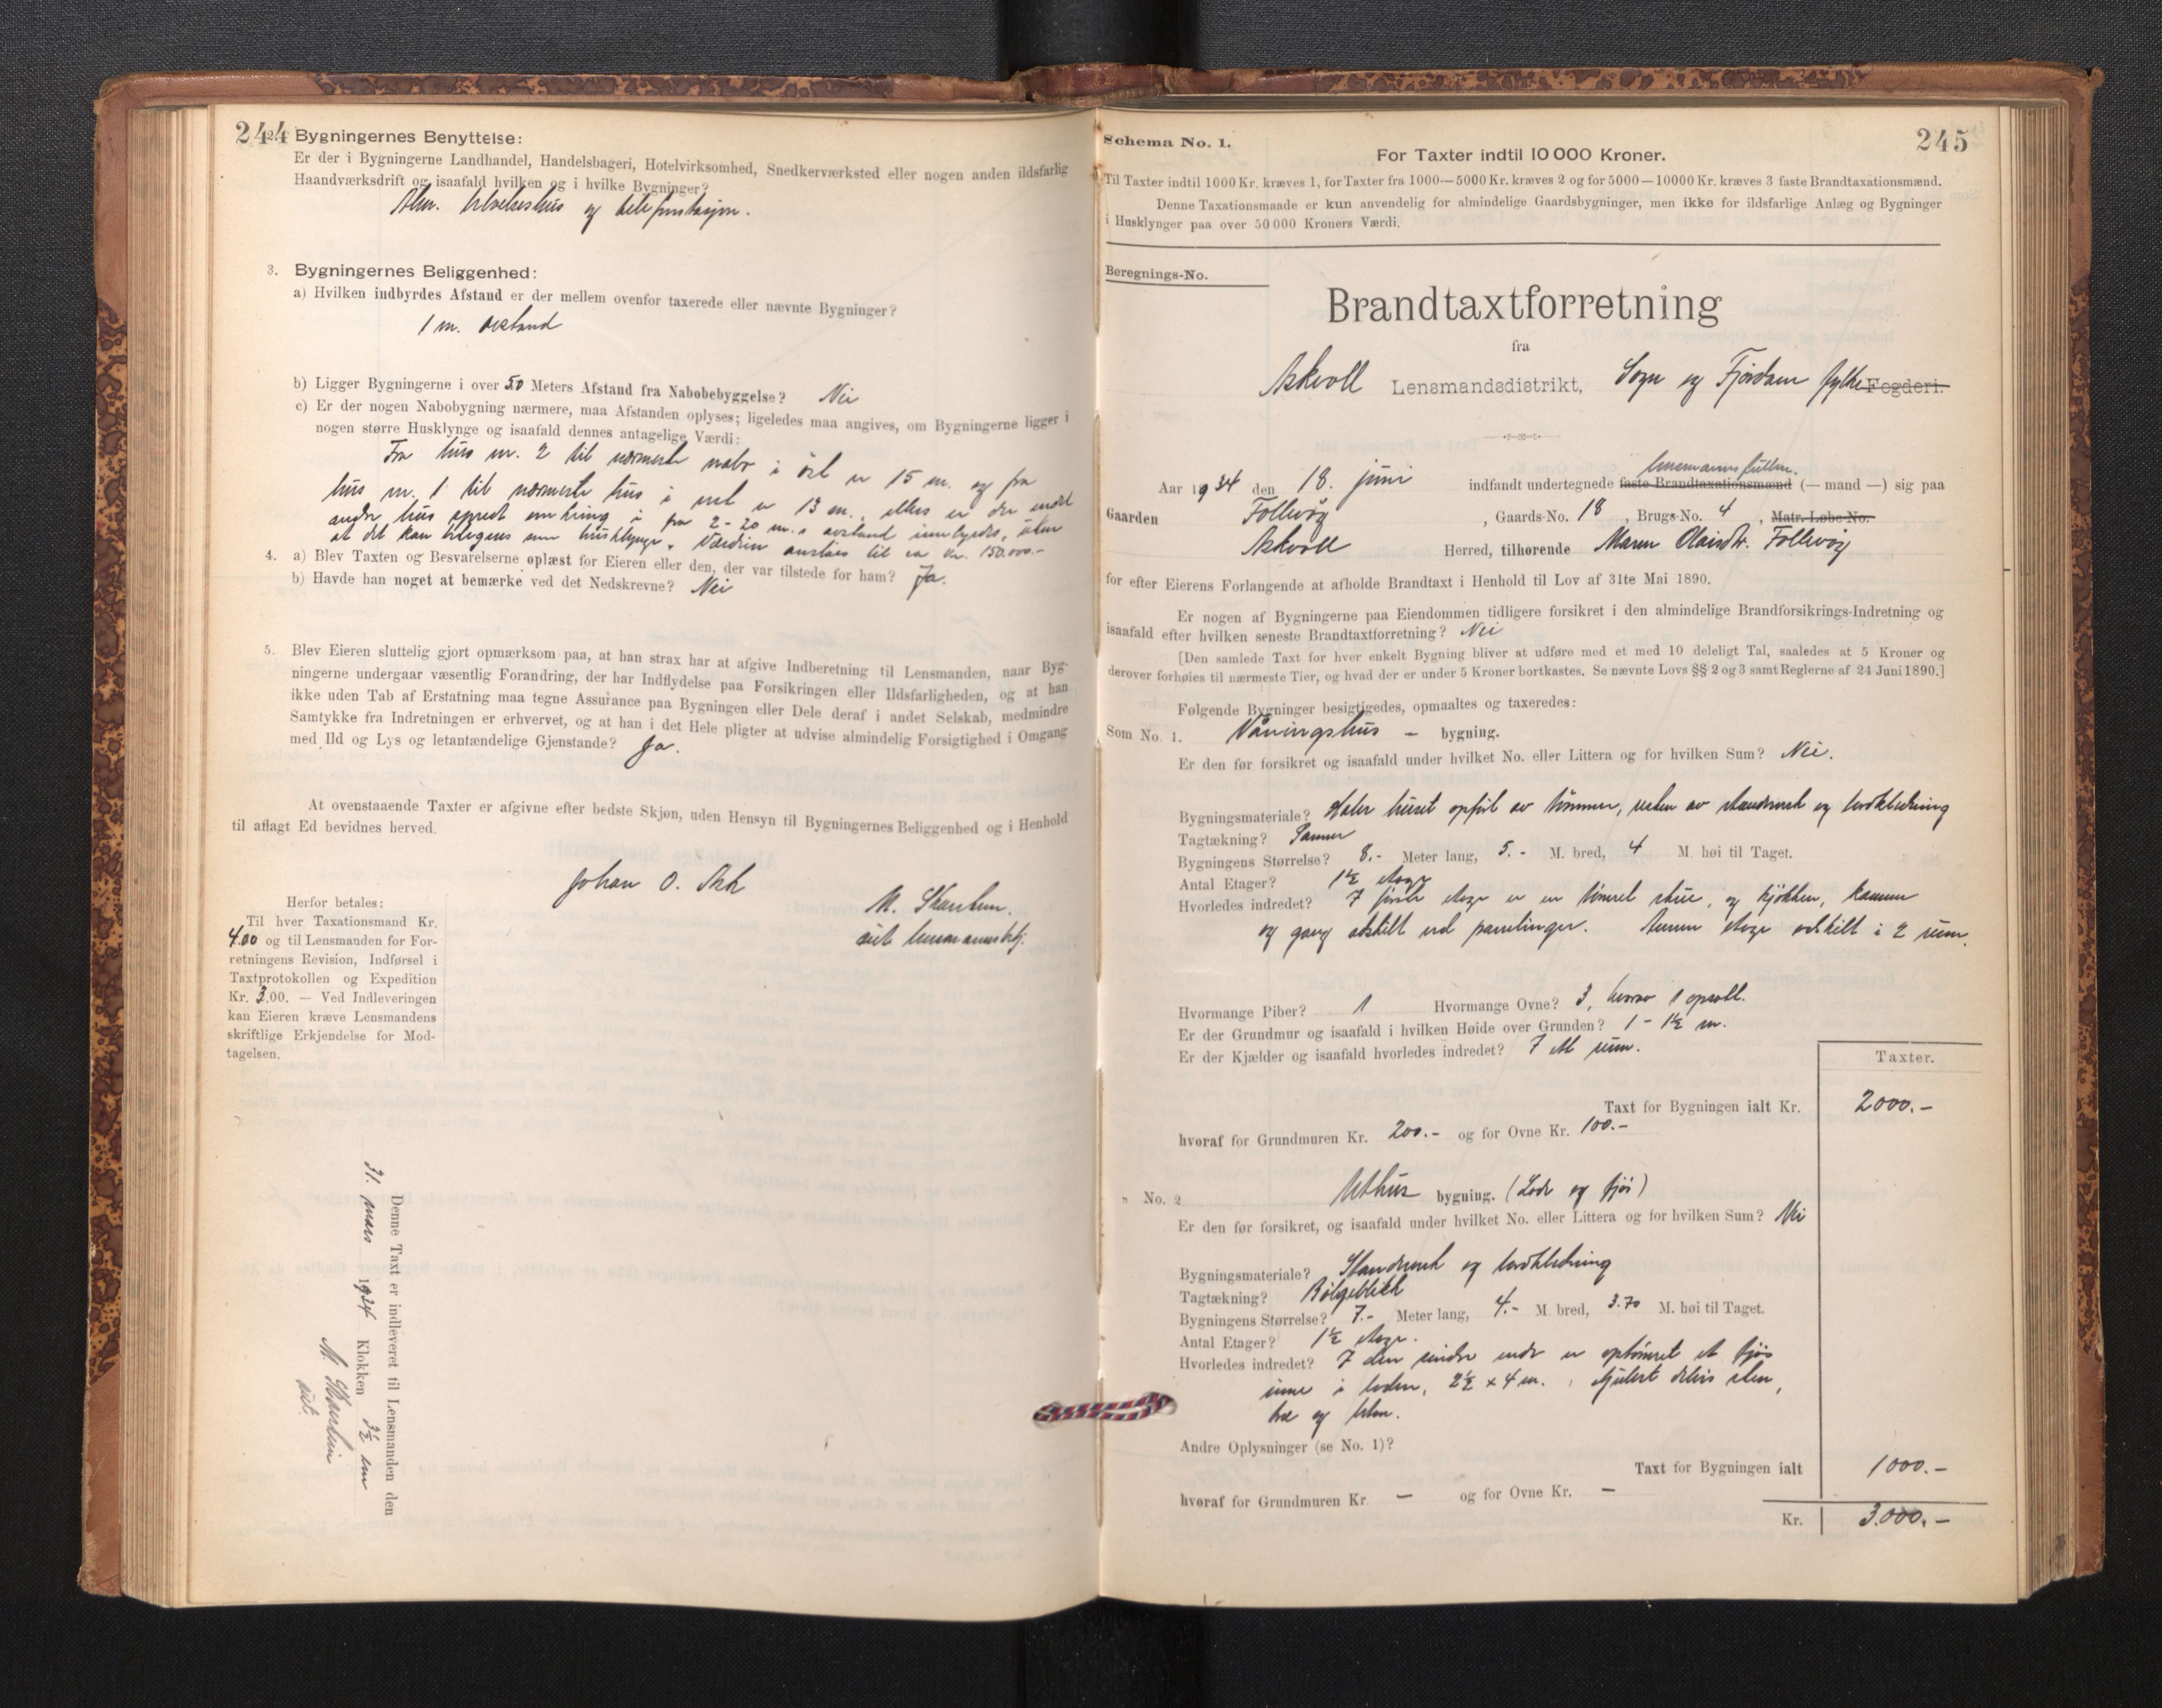 244
2. Bygningernes Benyttelse:
Er der i Bygningerne Landhandel, Handelsbageri, Hotelvirksomhed, Snedkerværksted eller nogen anden ildsfarlig
Haandværksdrift og isaafald hvilken og i hvilke Bygninger?
Alm. og telefonstasjon.
3. Bygningernes Beliggenhed:
a) Hvilken indbyrdes Afstand er der mellem ovenfor taxerede eller nævnte Bygninger?
1 m. avstand
b) Ligger Bygningerne i over 50 Meters Afstand fra Nabobebyggelse? Nei
c) Er der nogen Nabobygning nærmere, maa Afstanden oplyses; ligeledes maa angives, om Bygningerne ligger i
nogen større Husklynge og isaafald dennes antagelige Værdi:
Fra hus nr. 2 til nærmeste nabo i öst er 15 m. og fra
hus nr. 1 til nærmeste hus i vest er 13 m., ellers er der endel
andre hus spredt omkring i fra 2-20 m.s avstand innbyrdes, uten
at det kan som husklynge. Værdien anslåes til ca kr. 150.000.-
4. a) Blev Taxten og Besvarelserne oplæst for Eieren eller den, der var tilstede for ham? Ja.
b) Havde han noget at bemærke ved det Nedskrevne? Nei
5. Blev Eieren sluttelig gjort opmærksom paa, at han strax har at afgive Indberetning til Lensmanden, naar Byg-
ningerne undergaar væsentlig Forandring, der har Indflydelse paa Forsikringen eller Ildsfarligheden, og at han
ikke uden Tab af Erstatning maa tegne Assurance paa Bygningen eller Dele deraf i andet Selskab, medmindre
Samtykke fra Indretningen er erhvervet, og at han i det Hele pligter at udvise almindelig Forsigtighed i Omgang
med Ild og Lys og letantændelige Gjenstande? Ja.
At ovenstaaende Taxter er afgivne efter bedste Skjøn, uden Hensyn til Bygningernes Beliggenhed og i Henhold
til aflagt Ed bevidnes herved.
Johan O. Ask
Herfor betales:
Til hver Taxationsmand Kr.
4.00 og til Lensmanden for For-
retningens Revision, Indførsel i
Taxtprotokollen og Expedition
Kr. 3.00. — Ved Indleveringen
kan Eieren kræve Lensmandens
skriftlige Erkjendelse for Mod-
tagelsen.
Denne Taxt er indleveret til Lensmanden den
31. mars 1934 Klokken 3½ em
245
Schema No. 1.
For Taxter indtil 10 000 Kroner.
Til Taxter indtil 1000 Kr. kræves 1, for Taxter fra 1000—5000 Kr. kræves 2 og for 5000—10000 Kr. kræves 3 faste Brandtaxationsmænd.
Denne Taxationsmaade er kun anvendelig for almindelige Gaardsbygninger, men ikke for ildsfarlige Anlæg og Bygninger
i Husklynger paa over 50 000 Kroners Værdi.
Beregnings-No.
Brandtaxtforretning
fra
Askvoll Lensmandsdistrikt, Sogn og Fjordane fylke Fogderi.
Aar 1934 den 18. juni indfandt undertegnede faste Brandtaxationsmænd (— mand —) sig paa
Gaarden Follevåg, Gaards-No. 18, Brugs-No. 4, Matr.-Løbe-No.
Askvoll Herred, tilhørende Maren Follevåg
for efter Eierens Forlangende at afholde Brandtaxt i Henhold til Lov af 31te Mai 1890.
Er nogen af Bygningerne paa Eiendommen tidligere forsikret i den almindelige Brandforsikrings-Indretning og
isaafald efter hvilken seneste Brandtaxtforretning? Nei
[Den samlede Taxt for hver enkelt Bygning bliver at udføre med et med 10 deleligt Tal, saaledes at 5 Kroner og
derover forhøies til nærmeste Tier, og hvad der er under 5 Kroner bortkastes. Se nævnte Lovs §§ 2 og 3 samt Reglerne af 24 Juni 1890.]
Følgende Bygninger besigtigedes, opmaaltes og taxeredes:
Som No. 1. Våningshus - bygning.
Er den før forsikret og isaafald under hvilket No. eller Littera og for hvilken Sum? Nei.
Bygningsmateriale? Halve huset opført av tömmer, resten av standverk og bordkledning
Tagtækning? Panner
Bygningens Størrelse? 8.- Meter lang, 5.- M. bred, 4 M. høi til Taget.
Antal Etager? 1½ etage
Hvorledes indredet? I første etage er en tömret stue, og kjøkken, kammer
og gang adskilt ved panelinger. Annen etage adskilt i 2 rum.
Hvormange Piber? 1 Hvormange Ovne? 3, herav 1 opsatt.
Er der Grundmur og isaafald i hvilken Høide over Grunden? 1 - 1½ m.
Er der Kjælder og isaafald hvorledes indredet? I ett rum.
Taxter.
Taxt for Bygningen ialt Kr. 2000.-
hvoraf for Grundmuren Kr. 200.- og for Ovne Kr. 100.-
" No. 2 Uthus bygning. (Lode og fjös)
Er den før forsikret, og isaafald under hvilket No. eller Littera og for hvilken Sum? Nei
Bygningsmateriale? Standverk og bordkledning
Tagtækning? Bölgeblekk
Bygningens Størrelse? 7.- Meter lang, 4.- M. bred, 3.70 M. høi til Taget.
Antal Etager? 1½ etage.
Hvorledes indredet? I den endre er optömret et fjös
inne i loden, 2½ x 4 m. delvis sten,
tre og
Andre Oplysninger (se No. 1)?
Taxt for Bygningen ialt 1000.-
hvoraf for Grundmuren Kr. — og for Ovne Kr. —
Kr. 3.000.-